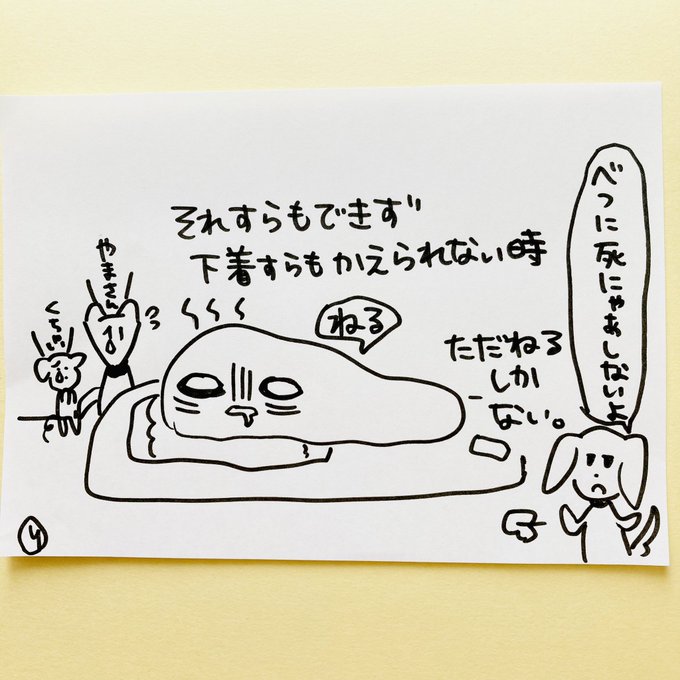 それすらもできず
下着すらもかえられない時
べつに死にゃあしないよ
やまさん
ねる
ただねる
しか
ない。